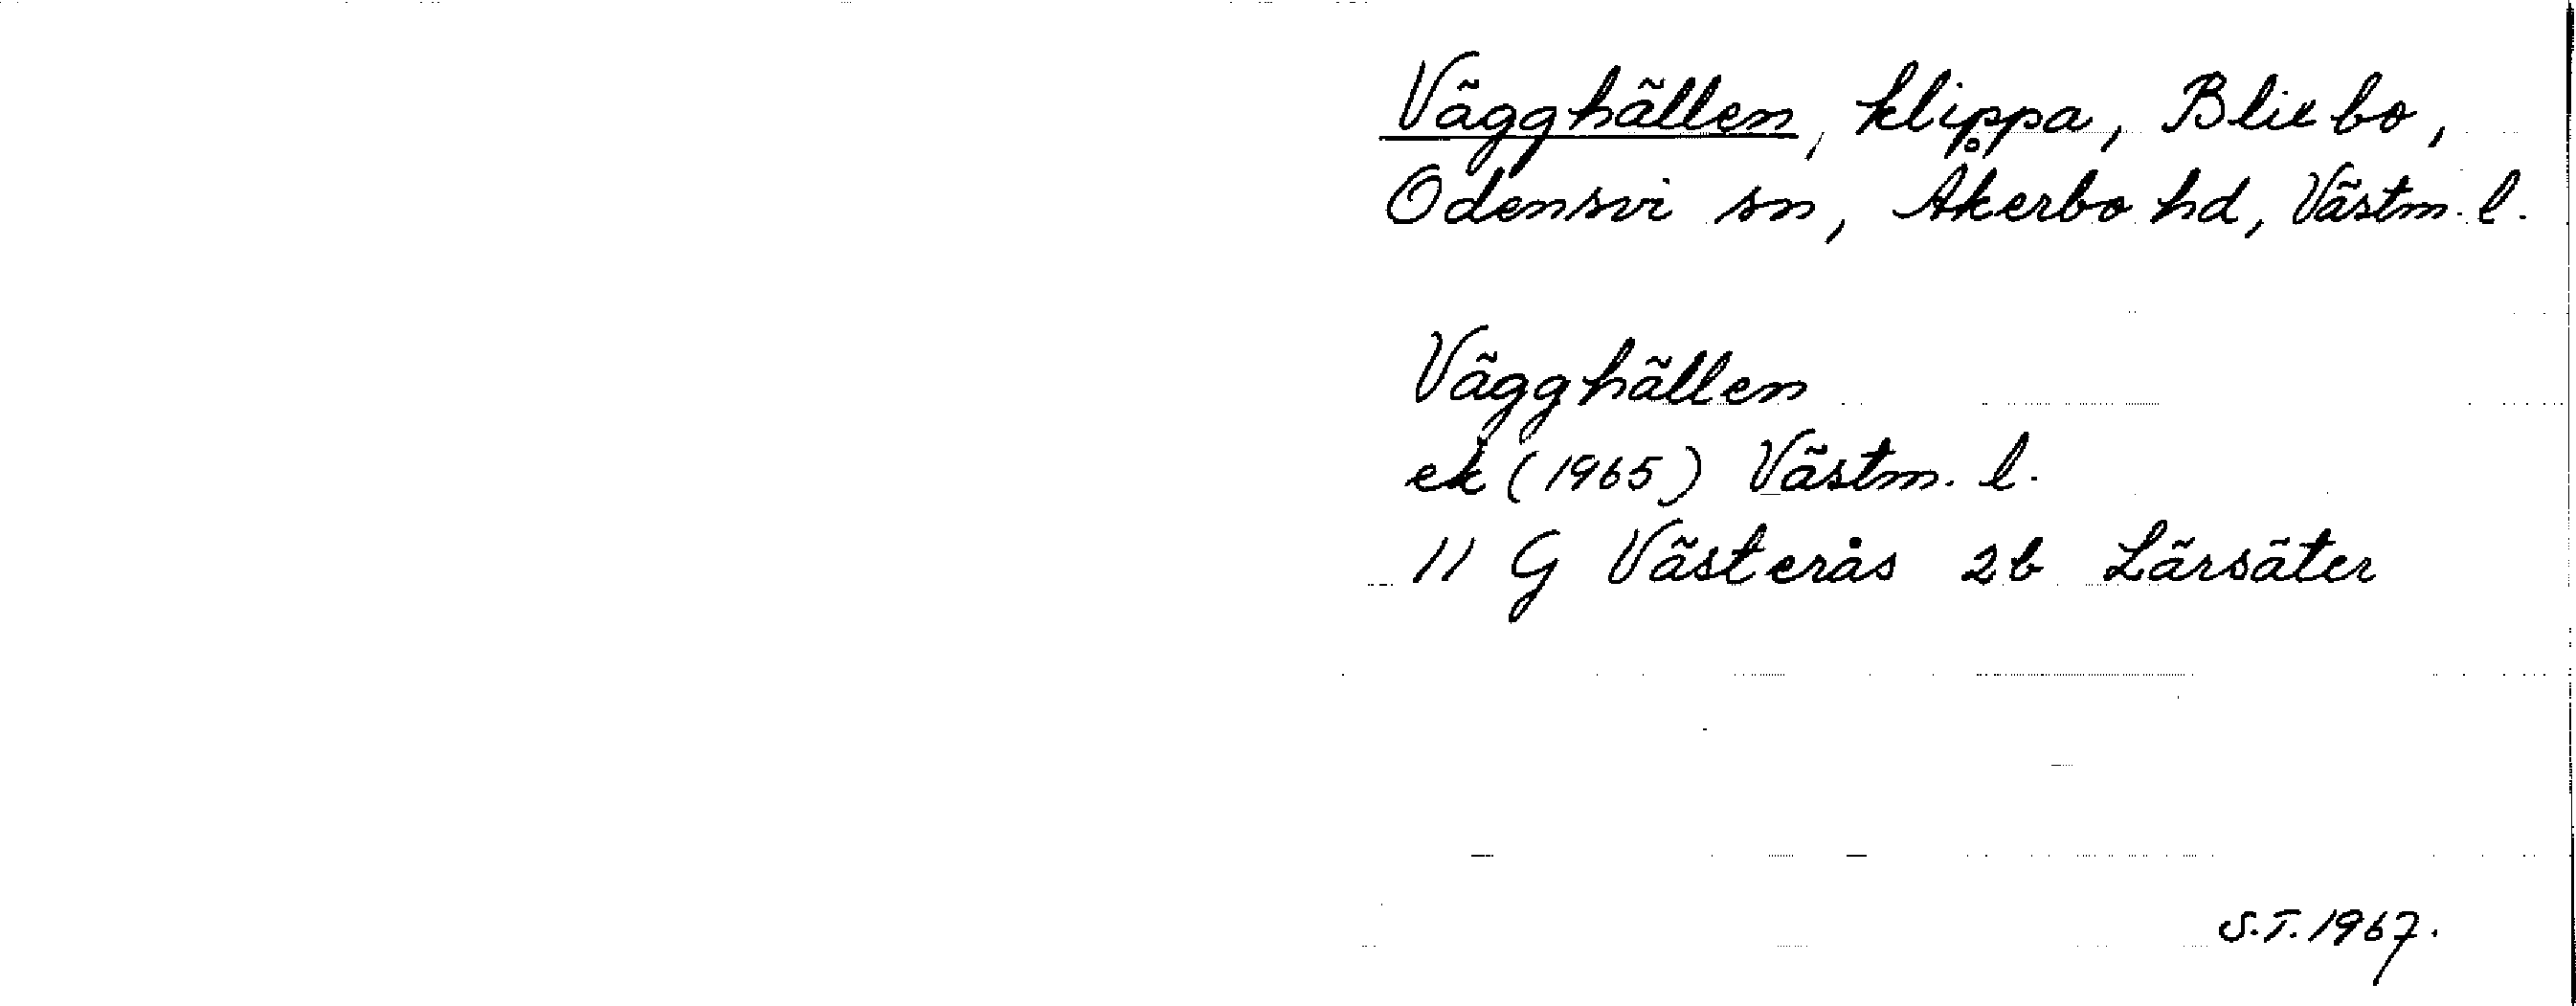 Vägghällen, klippa, Blixbo,
Odensvi sn, Åkerbo hd, Västm. l.
Vägghällen
ek (1965) Västm. l.
11 G Västerås 2b Lärsäter
S.T. 1967.